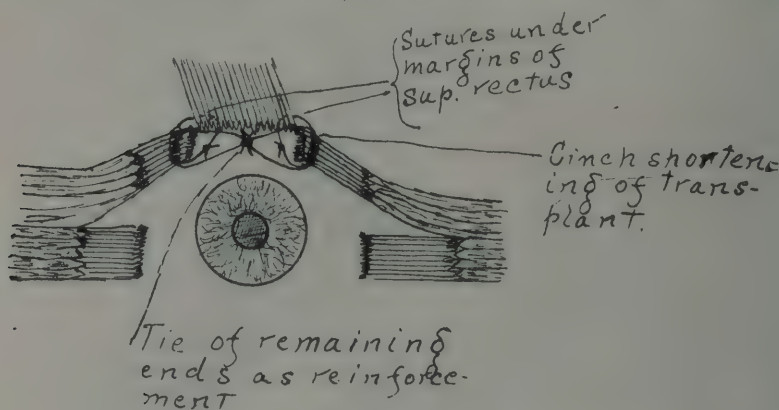 Sutures under
margins of
sup. rectus
Cinch shorten-
ing of trans-
plant.
Tie of remaining
ends as reinforce-
ment